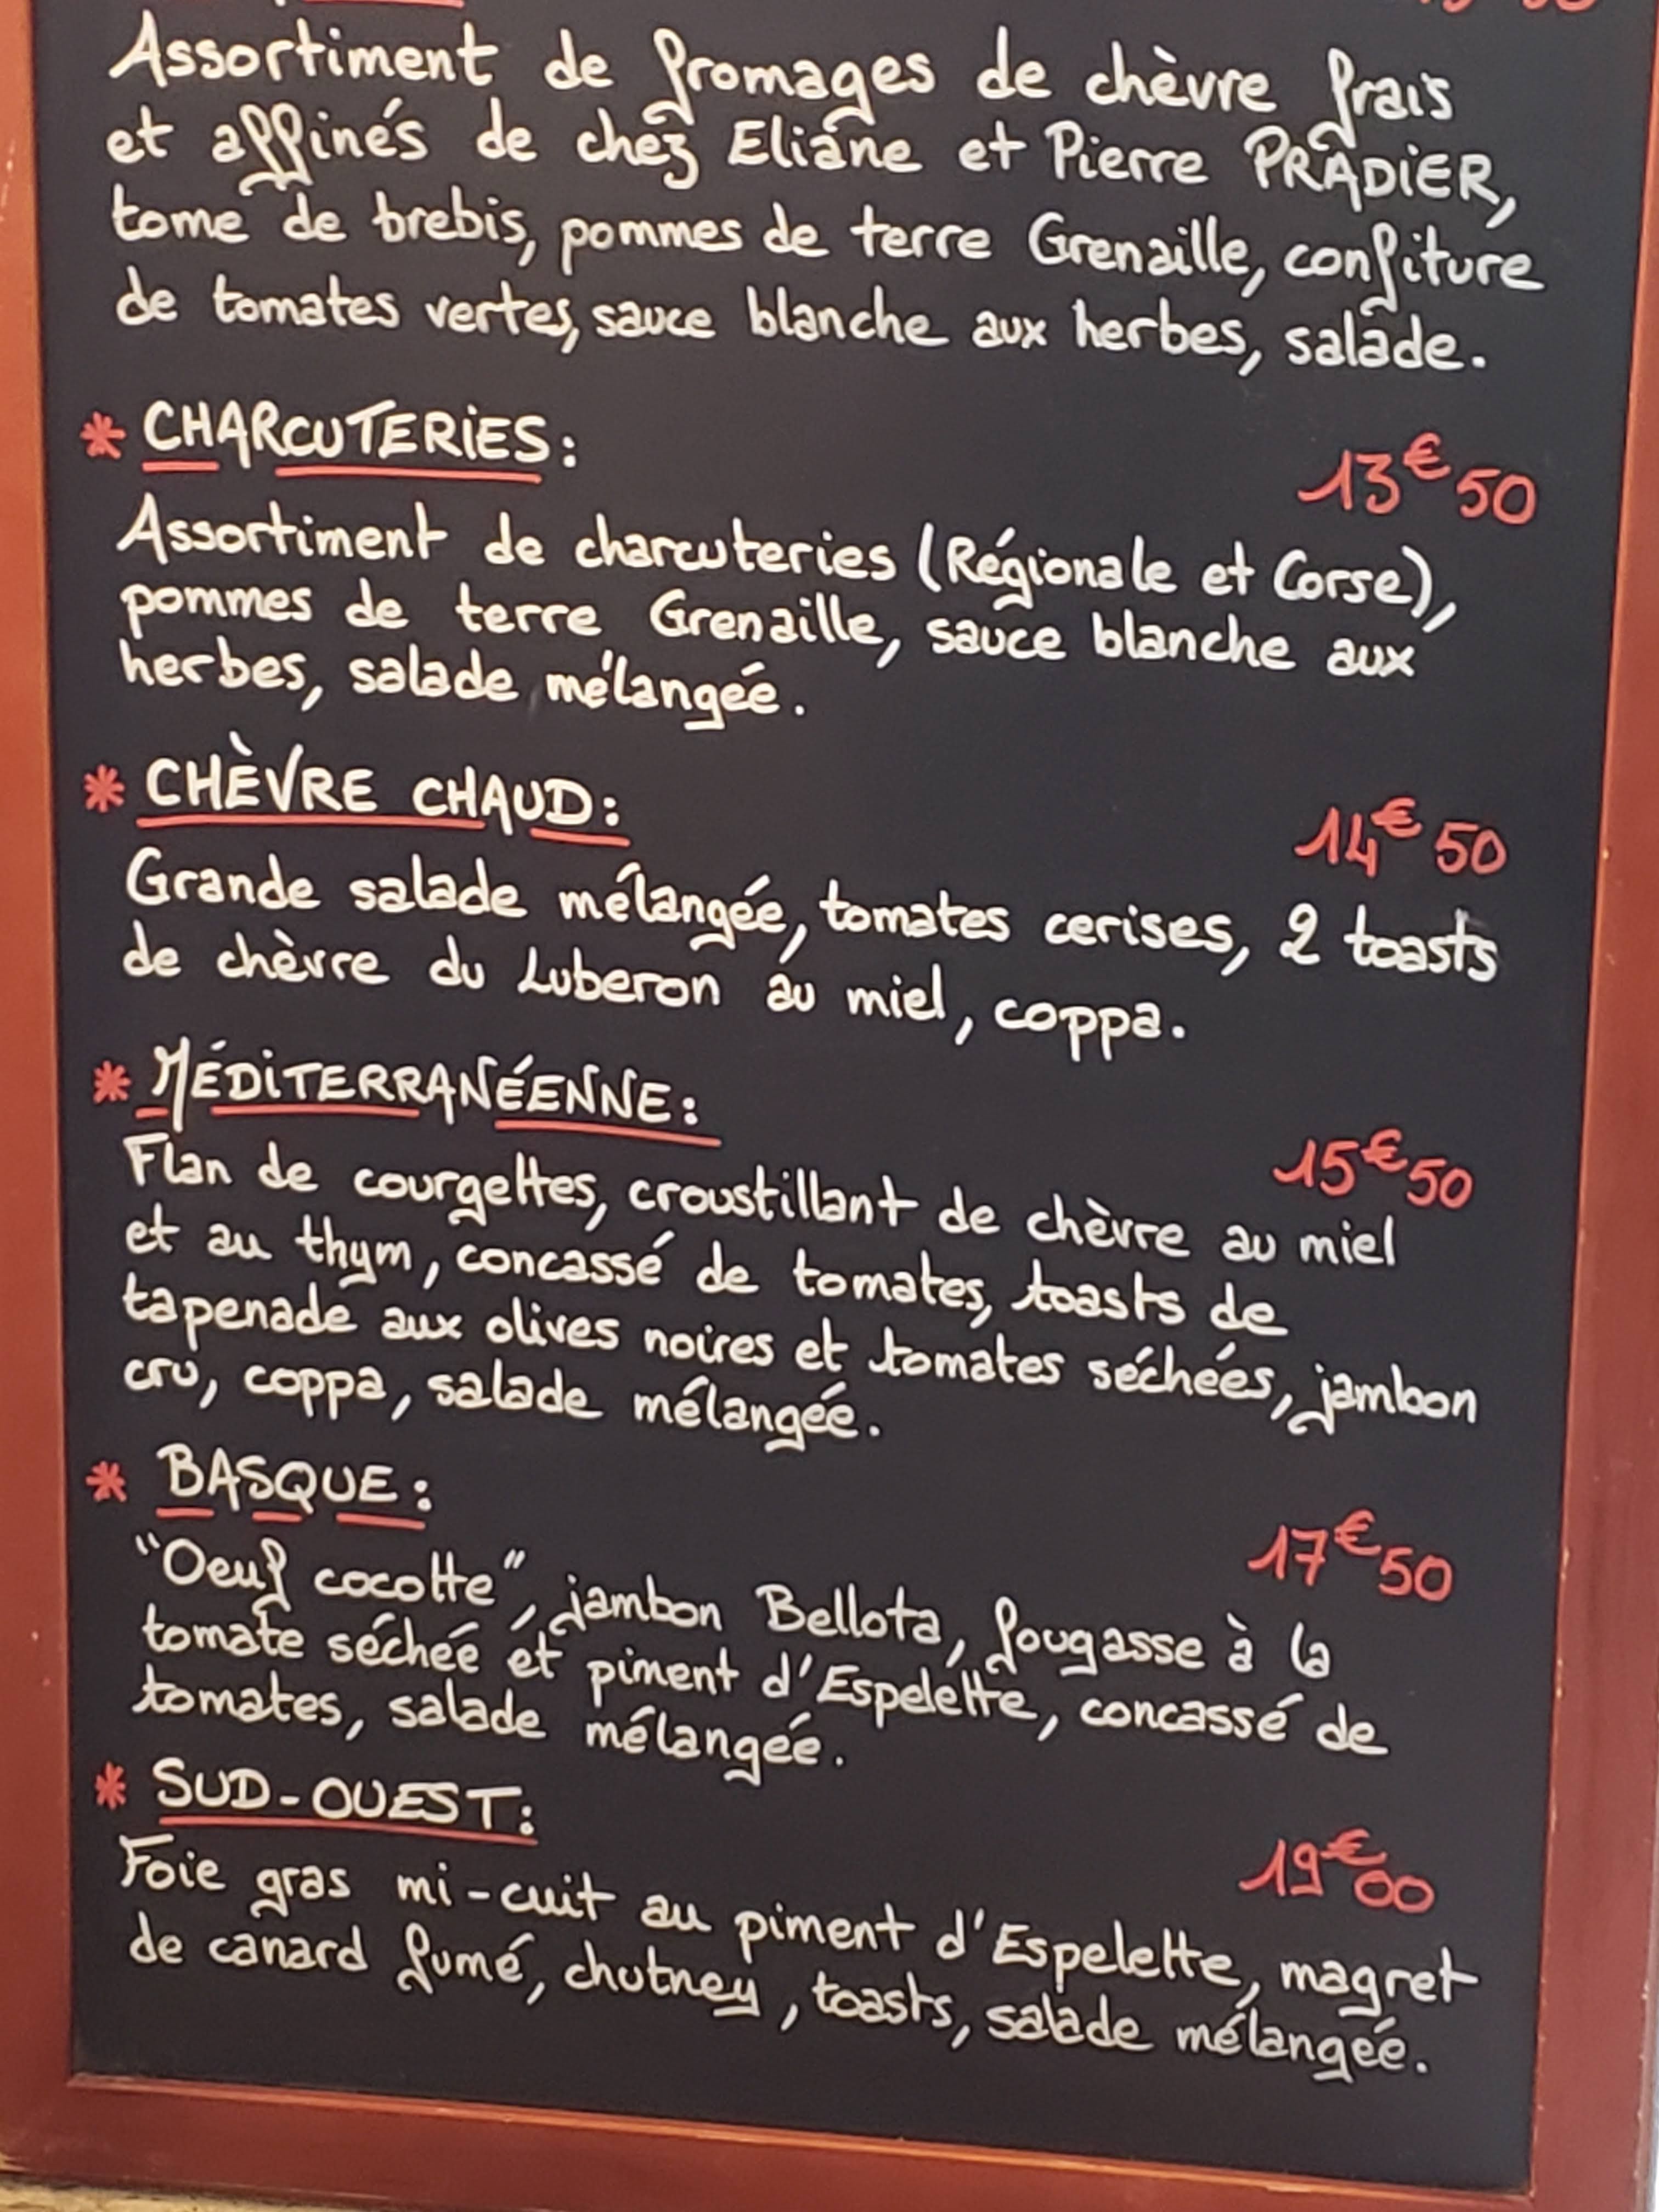 Assortiment de fromages de chèvre frais
et affinés de chez Eliane et Pierre PRADIER,
tome de brebis, pommes de terre Grenaille, confiture
de tomates vertes, sauce blanche aux herbes, salade.
* CHARCUTERIES :
13€50
Assortiment de charcuteries (Régionale et Corse),
pommes de terre Grenaille, sauce blanche aux
herbes, salade mélangée.
* CHÈVRE CHAUD :
14€50
Grande salade mélangée, tomates cerises, 2 toasts
de chèvre du Luberon au miel, coppa.
* MÉDITERRANÉENNE :
15€50
Flan de courgettes, croustillant de chèvre au miel
et au thym, concassé de tomates, toasts de
tapenade aux olives noires et tomates séchées, jambon
cru, coppa, salade mélangée.
* BASQUE :
17€50
"Oeuf cocotte", jambon Bellota, fougasse à la
tomate séchée et piment d'Espelette, concassé de
tomates, salade mélangée.
* SUD-OUEST :
19€00
Foie gras mi-cuit au piment d'Espelette, magret
de canard fumé, chutney, toasts, salade mélangée.